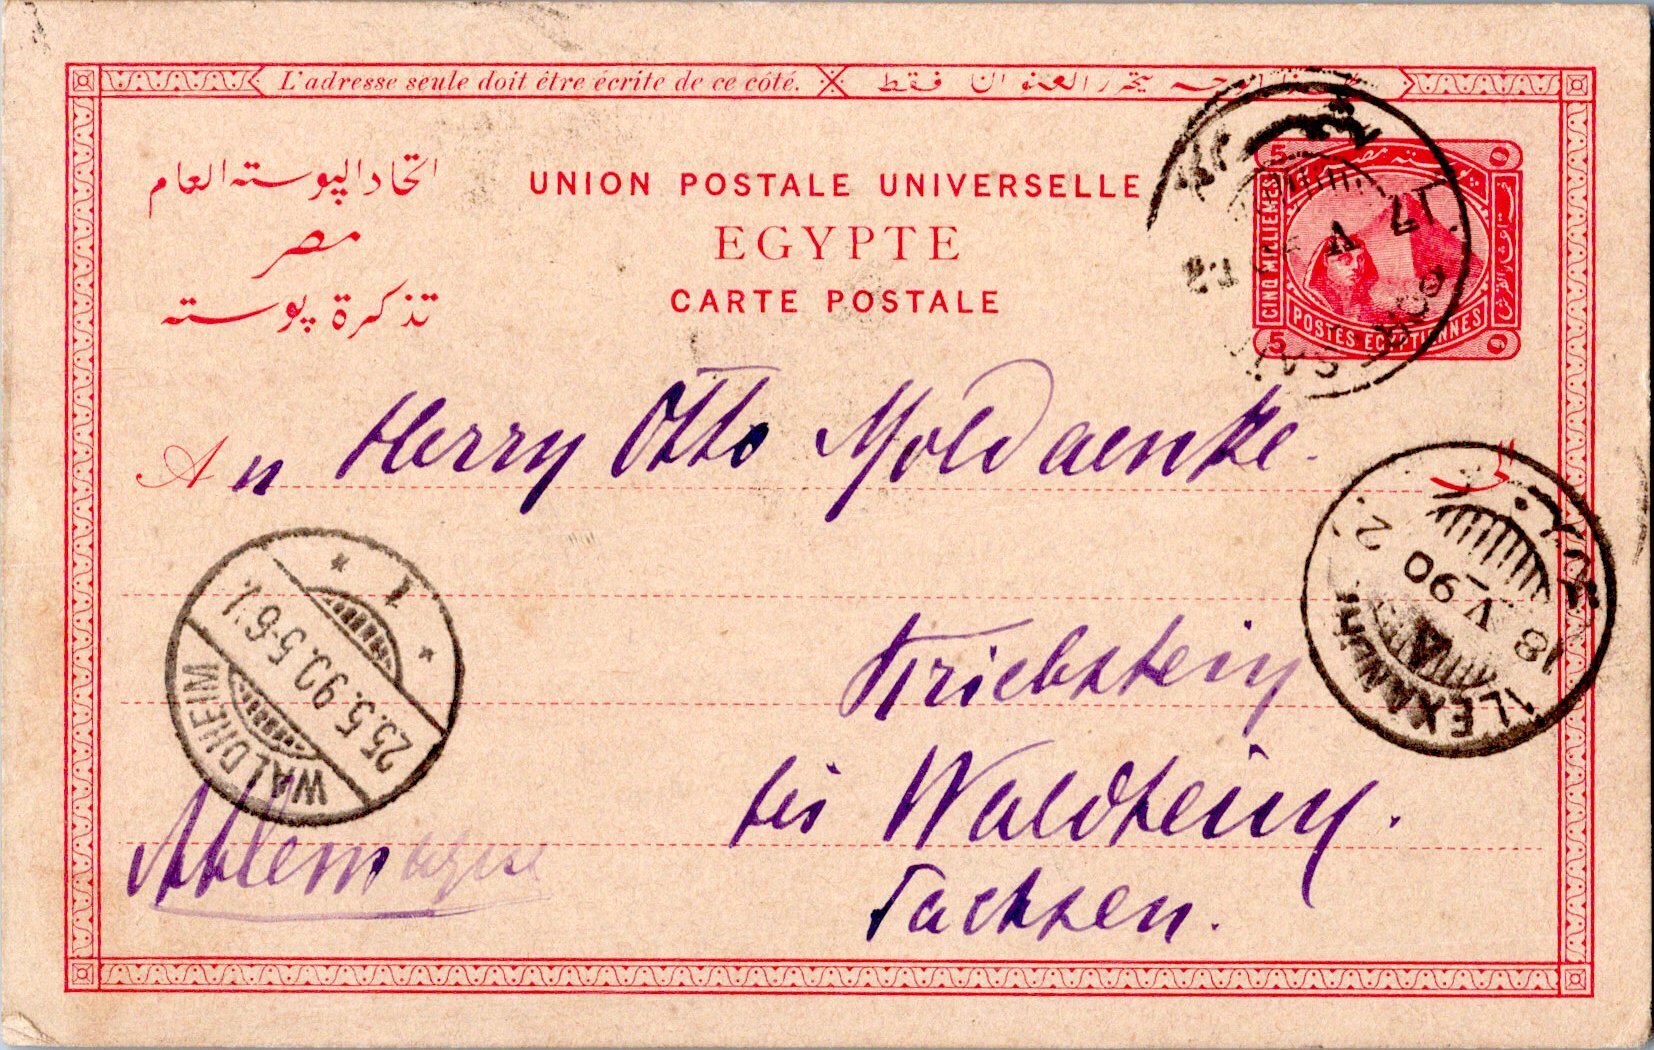 L'adresse seule doit être écrite de ce côté.
العنوان فقط
اتحاد البوسته العام
مصر
تذكرة بوسته
UNION POSTALE UNIVERSELLE
EGYPTE
CARTE POSTALE
5
CINQ MILLIEMES
POSTES EGYPTIENNES
5
17 V
An Herrn Otto Moldaenke.
ALEXANDRI
18 V 90
2.
WALDHEIM
25.5.90.5-6V.
* 1 *
Kriebstein
bei Waldheim.
Sachsen.
Allemagne